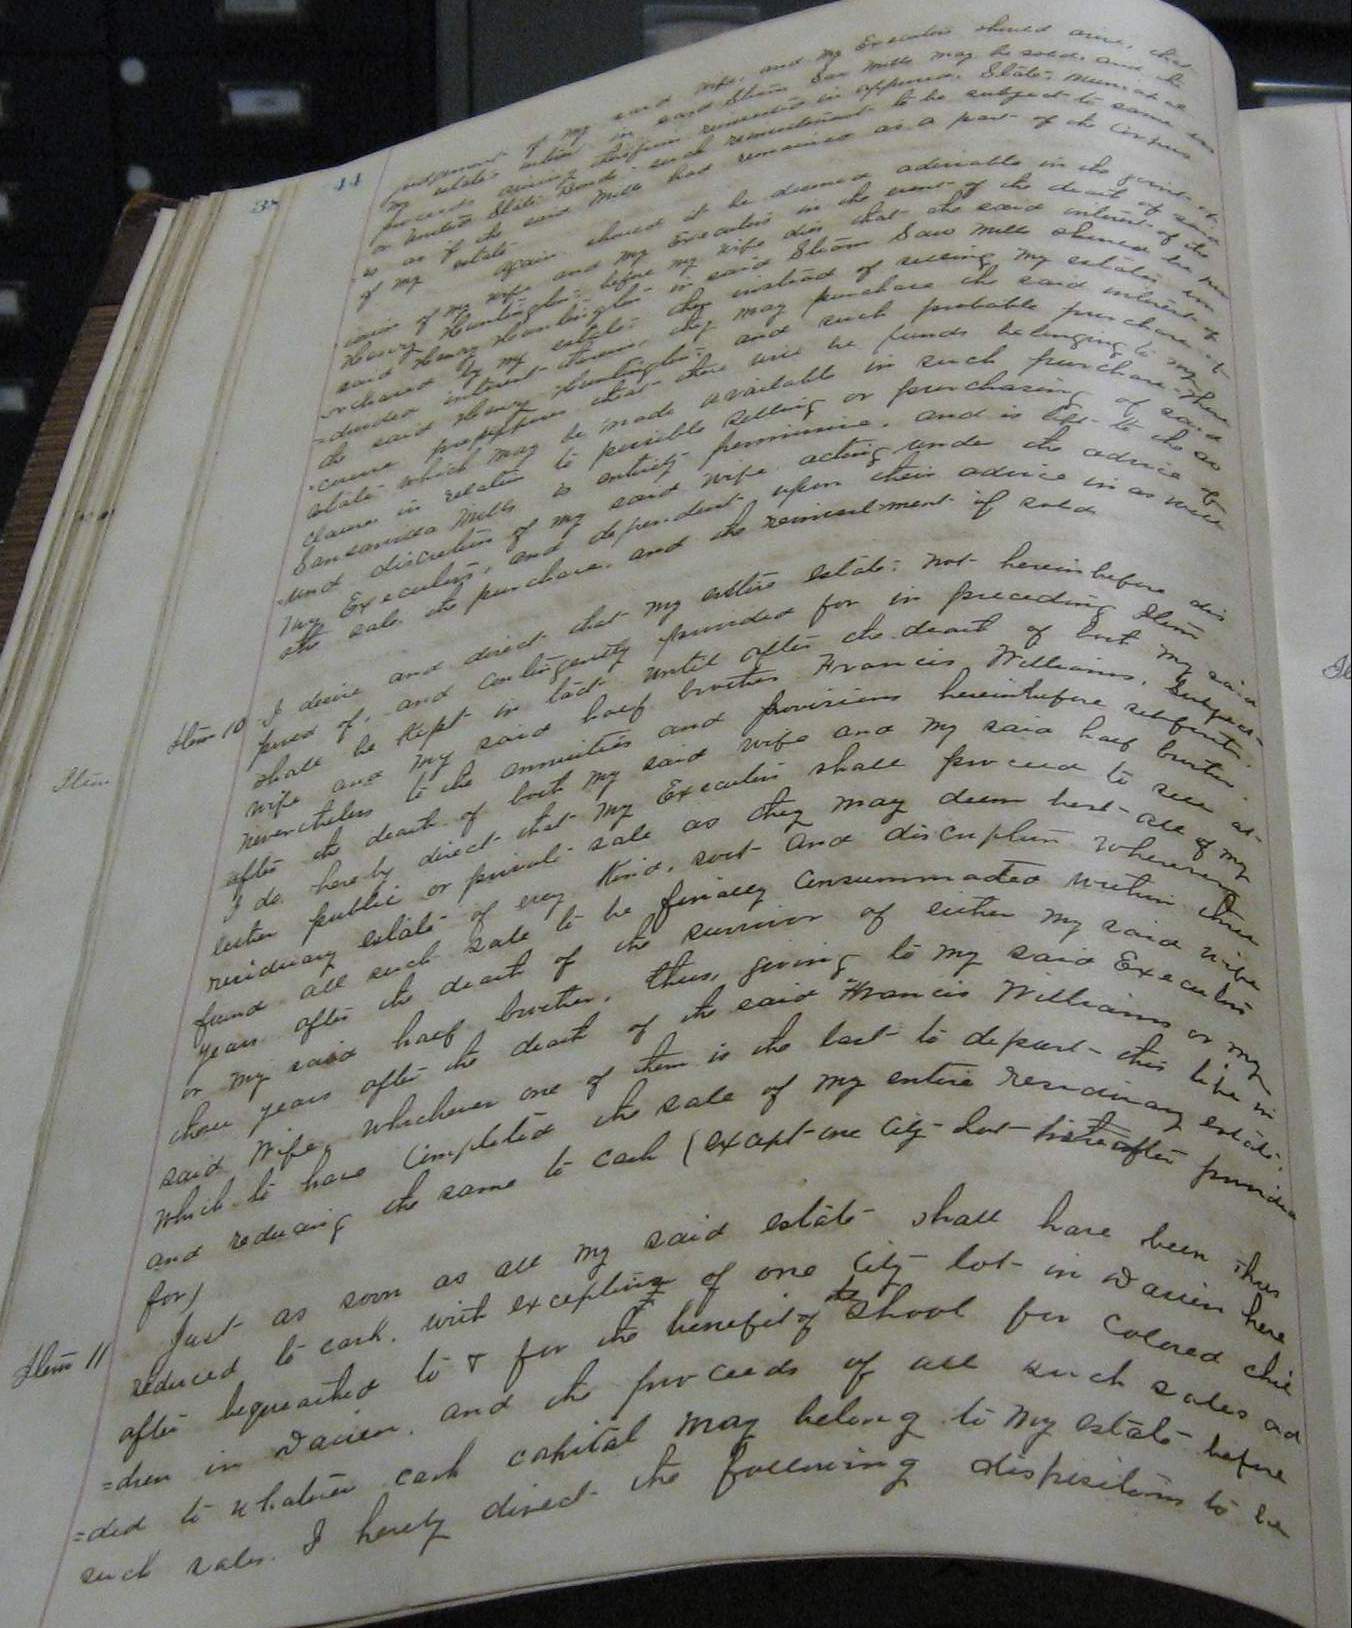 44
judgment of my said wife, and my Executors should arise, that
my estates interest in said Steam Saw Mills may be sold, and the
proceeds arising therefrom reinvested in approved State, Municipal
or United States Bonds - such reinvestment to be subject to same uses
as if the said Mills had remained as a part of the Corpus
of my estate
again should it be deemed advisable in the joint op
=inion of my wife and my Executors in the event of the death of said
Henry Huntington before my wife dies that the said interest of the
said Henry Huntington in said Steam Saw Mills should be pur
=chased by my estate: then instead of selling my estates un
=divided interest therein, they may purchase the said interest of
the said Henry Huntington; and such probable purchase of
course presupposes that there will be funds belonging to my
estate which may be made available in such purchase. This
clause in relation to possible selling or purchasing of said
Sansavilla Mills is entirely permissive, and is left to the so
=und discretion of my said wife acting under the advice of
my Executors, and dependent upon their advice in as well
the sale, the purchase, and the reinvestment if sold
Item 10 I desire and direct that my entire estate: not hereinbefore dis
posed of, and contingently provided for in preceding Items
shall be kept in tact until after the death of both my said
wife and my said half brother Francis Williams, subject
nevertheless to the annuities and provisions hereinbefore set forth.
after the death of both my said wife and my said half brother
I do hereby direct that my Executors shall proceed to sell at
either public or private sale as they may deem best all of my
residuary estate of every kind, sort and discription wherever
found all such sale to be finally consummated within three
years after the death of the survivor of either my said wife
or my said half brother, thus, giving to my said Executors
three years after the death of the said Francis Williams or my
said Wife, whichever one of them is the last to depart this life in
which to have completed the sale of my entire residuary estate,
and reducing the same to cash (except one City lot hereafter provided
for)
Item 11 Just as soon as all my said estate shall have been thus
reduced to cash, with exception of one City lot in Darien here
after bequeathed to & for the benefit of the School for colored chil
=dren in Darien, and the proceeds of all such sales ad
=ded to whatever cash capital may belong to my estate before
such sales. I hereby direct the following dispositions to be
Item